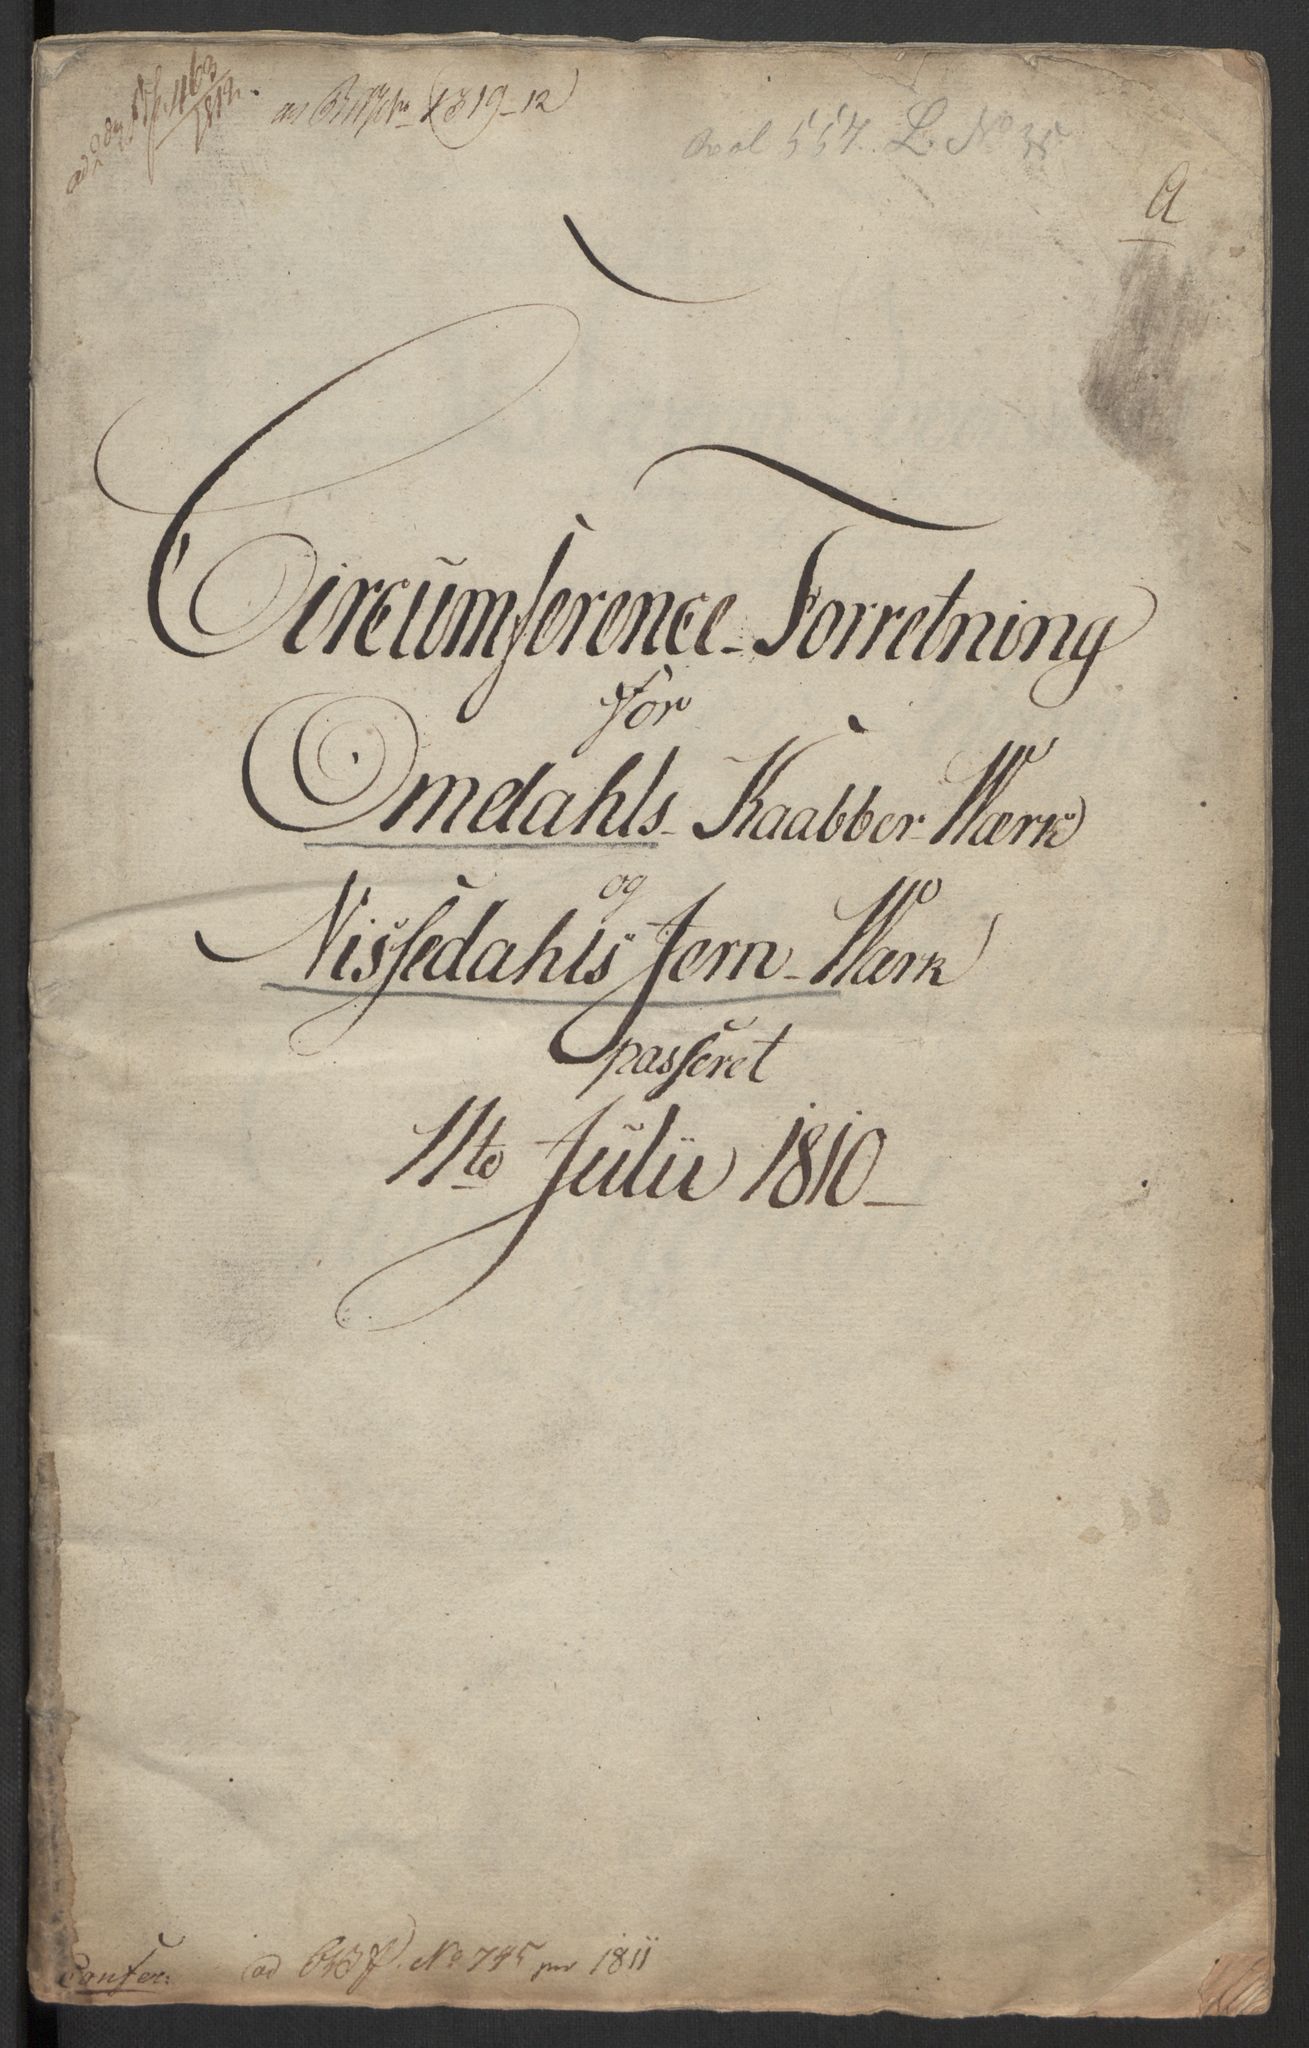 463
1812.
1819-12
557. L. No 35
A
Circumference-Forretning
for
Omdahls-Kaabber-Wærk
og
Nissedahls Jern-Wærk
passeret
11te Julii 1810
Confer: ad No 745 pro 1811